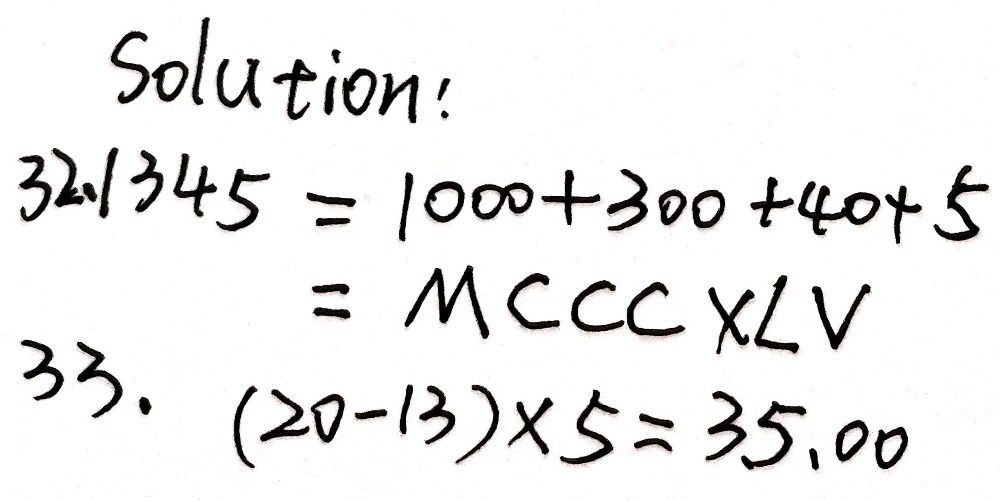 Solution:
32.1345 = 1000+300+40+5
= MCCCXLV
33. (20-13)×5=35.00